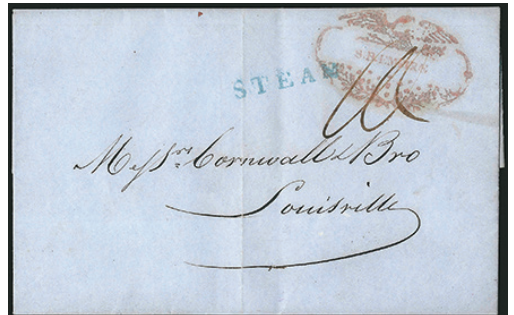 STEAM
Messrs. Cornwall & Bro
Louisville